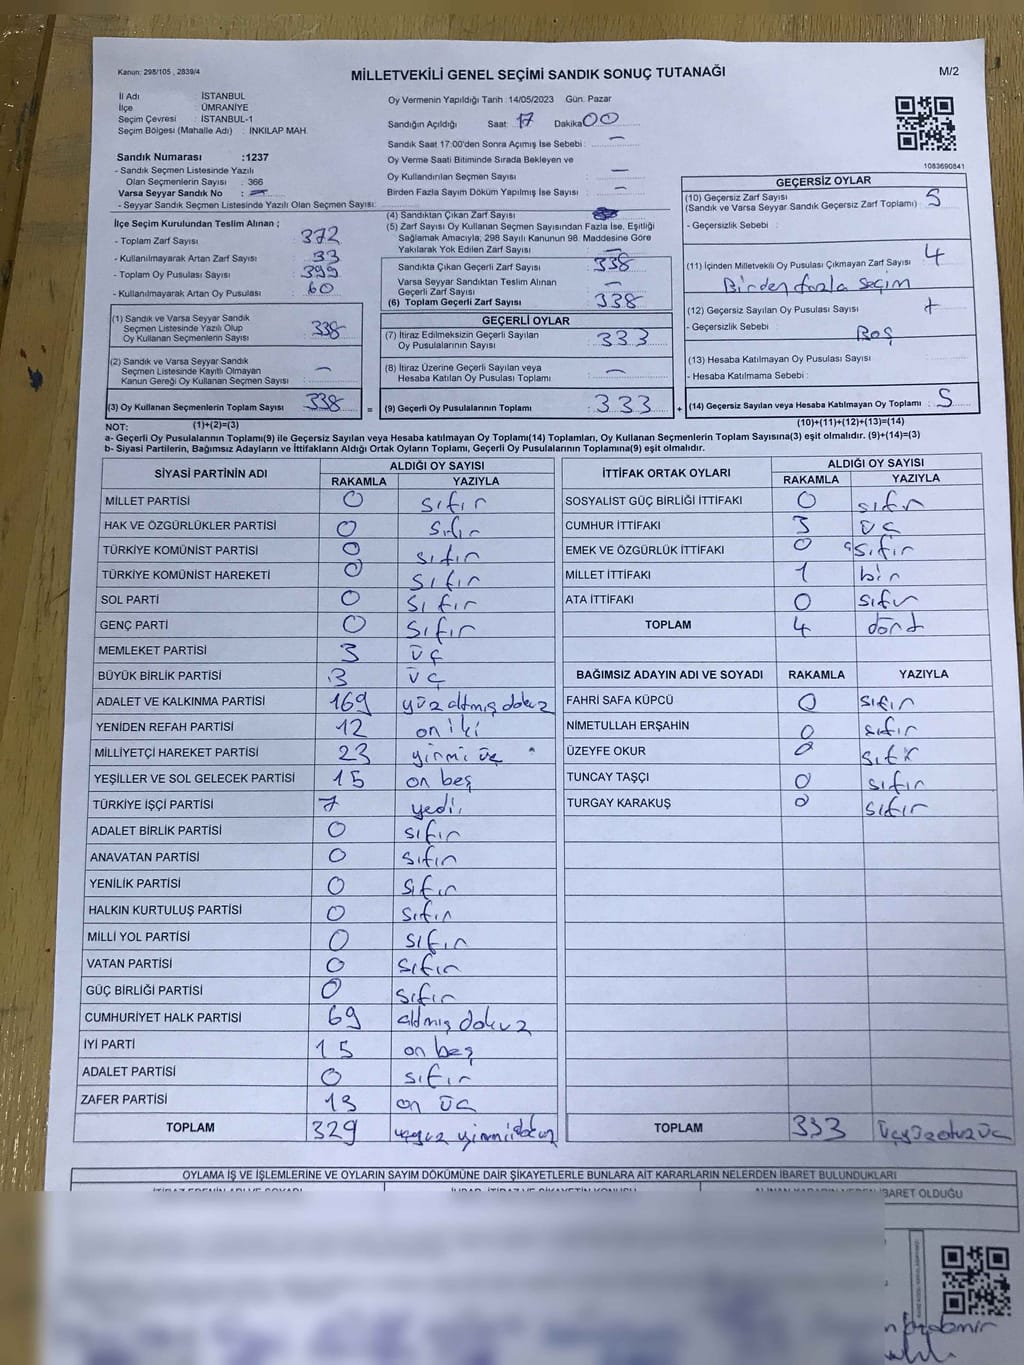 Kanun: 298/105 , 2839/4
MİLLETVEKİLİ GENEL SEÇİMİ SANDIK SONUÇ TUTANAĞI
M/2
İl Adı : İSTANBUL
İlçe : ÜMRANİYE
Seçim Çevresi : İSTANBUL-1
Seçim Bölgesi (Mahalle Adı) : İNKILAP MAH.
Sandık Numarası :1237
- Sandık Seçmen Listesinde Yazılı
Olan Seçmenlerin Sayısı : 366
Varsa Seyyar Sandık No :
- Seyyar Sandık Seçmen Listesinde Yazılı Olan Seçmen Sayısı:
Oy Vermenin Yapıldığı Tarih : 14/05/2023 Gün: Pazar
Sandığın Açıldığı Saat: 17 Dakika 00
Sandık Saat 17:00'den Sonra Açımış İse Sebebi : —
Oy Verme Saati Bitiminde Sırada Bekleyen ve
Oy Kullandırılan Seçmen Sayısı : —
Birden Fazla Sayım Döküm Yapılmış İse Sayısı : —
1083690841
İlçe Seçim Kurulundan Teslim Alınan ;
- Toplam Zarf Sayısı : 372
- Kullanılmayarak Artan Zarf Sayısı : 33
- Toplam Oy Pusulası Sayısı : 399
- Kullanılmayarak Artan Oy Pusulası : 60
(1) Sandık ve Varsa Seyyar Sandık
Seçmen Listesinde Yazılı Olup
Oy Kullanan Seçmenlerin Sayısı : 338
(2) Sandık ve Varsa Seyyar Sandık
Seçmen Listesinde Kayıtlı Olmayan
Kanun Gereği Oy Kullanan Seçmen Sayısı : —
(3) Oy Kullanan Seçmenlerin Toplam Sayısı 338 =
(4) Sandıktan Çıkan Zarf Sayısı :
(5) Zarf Sayısı Oy Kullanan Seçmen Sayısından Fazla İse, Eşitliği
Sağlamak Amacıyla; 298 Sayılı Kanunun 98. Maddesine Göre
Yakılarak Yok Edilen Zarf Sayısı : —
Sandıkta Çıkan Geçerli Zarf Sayısı : 338
Varsa Seyyar Sandıktan Teslim Alınan
Geçerli Zarf Sayısı : —
(6) Toplam Geçerli Zarf Sayısı : 338
GEÇERLİ OYLAR
(7) İtiraz Edilmeksizin Geçerli Sayılan
Oy Pusulalarının Sayısı : 333
(8) İtiraz Üzerine Geçerli Sayılan veya
Hesaba Katılan Oy Pusulası Toplamı : —
(9) Geçerli Oy Pusulalarının Toplamı : 333 +
GEÇERSİZ OYLAR
(10) Geçersiz Zarf Sayısı
(Sandık ve Varsa Seyyar Sandık Geçersiz Zarf Toplamı) : 5
- Geçersizlik Sebebi :
(11) İçinden Milletvekili Oy Pusulası Çıkmayan Zarf Sayısı : 4
Birden fazla seçim
(12) Geçersiz Sayılan Oy Pusulası Sayısı :
- Geçersizlik Sebebi : Boş
(13) Hesaba Katılmayan Oy Pusulası Sayısı :
- Hesaba Katılmama Sebebi :
(14) Geçersiz Sayılan veya Hesaba Katılmayan Oy Toplamı : 5
NOT: (1)+(2)=(3) (10)+(11)+(12)+(13)=(14)
a- Geçerli Oy Pusulalarının Toplamı(9) ile Geçersiz Sayılan veya Hesaba katılmayan Oy Toplamı(14) Toplamları, Oy Kullanan Seçmenlerin Toplam Sayısına(3) eşit olmalıdır. (9)+(14)=(3)
b- Siyasi Partilerin, Bağımsız Adayların ve İttifakların Aldığı Ortak Oyların Toplamı, Geçerli Oy Pusulalarının Toplamına(9) eşit olmalıdır.
SİYASİ PARTİNİN ADI ALDIĞI OY SAYISI
RAKAMLA YAZIYLA
MİLLET PARTİSİ 0 sıfır
HAK VE ÖZGÜRLÜKLER PARTİSİ 0 sıfır
TÜRKİYE KOMÜNİST PARTİSİ 0 sıfır
TÜRKİYE KOMÜNİST HAREKETİ 0 sıfır
SOL PARTİ 0 sıfır
GENÇ PARTİ 0 sıfır
MEMLEKET PARTİSİ 3 üç
BÜYÜK BİRLİK PARTİSİ 3 üç
ADALET VE KALKINMA PARTİSİ 169 yüz altmış dokuz
YENİDEN REFAH PARTİSİ 12 on iki
MİLLİYETÇİ HAREKET PARTİSİ 23 yirmi üç
YEŞİLLER VE SOL GELECEK PARTİSİ 15 on beş
TÜRKİYE İŞÇİ PARTİSİ 7 yedi
ADALET BİRLİK PARTİSİ 0 sıfır
ANAVATAN PARTİSİ 0 sıfır
YENİLİK PARTİSİ 0 sıfır
HALKIN KURTULUŞ PARTİSİ 0 sıfır
MİLLİ YOL PARTİSİ 0 sıfır
VATAN PARTİSİ 0 sıfır
GÜÇ BİRLİĞİ PARTİSİ 0 sıfır
CUMHURİYET HALK PARTİSİ 69 altmış dokuz
İYİ PARTİ 15 on beş
ADALET PARTİSİ 0 sıfır
ZAFER PARTİSİ 13 on üç
TOPLAM 329 üçyüz yirmi dokuz
İTTİFAK ORTAK OYLARI ALDIĞI OY SAYISI
RAKAMLA YAZIYLA
SOSYALIST GÜÇ BİRLİĞİ İTTİFAKI 0 sıfır
CUMHUR İTTİFAKI 3 üç
EMEK VE ÖZGÜRLÜK İTTİFAKI 0 sıfır
MİLLET İTTİFAKI 1 bir
ATA İTTİFAKI 0 sıfır
TOPLAM 4 dört
BAĞIMSIZ ADAYIN ADI VE SOYADI RAKAMLA YAZIYLA
FAHRİ SAFA KÜPCÜ 0 sıfır
NİMETULLAH ERŞAHİN 0 sıfır
ÜZEYFE OKUR 0 sıfır
TUNCAY TAŞÇI 0 sıfır
TURGAY KARAKUŞ 0 sıfır
TOPLAM 333 üçyüzotuzüç
OYLAMA İŞ VE İŞLEMLERİNE VE OYLARIN SAYIM DÖKÜMÜNE DAİR ŞİKAYETLERLE BUNLARA AİT KARARLARIN NELERDEN İBARET BULUNDUKLARI
İBARET OLDUĞU